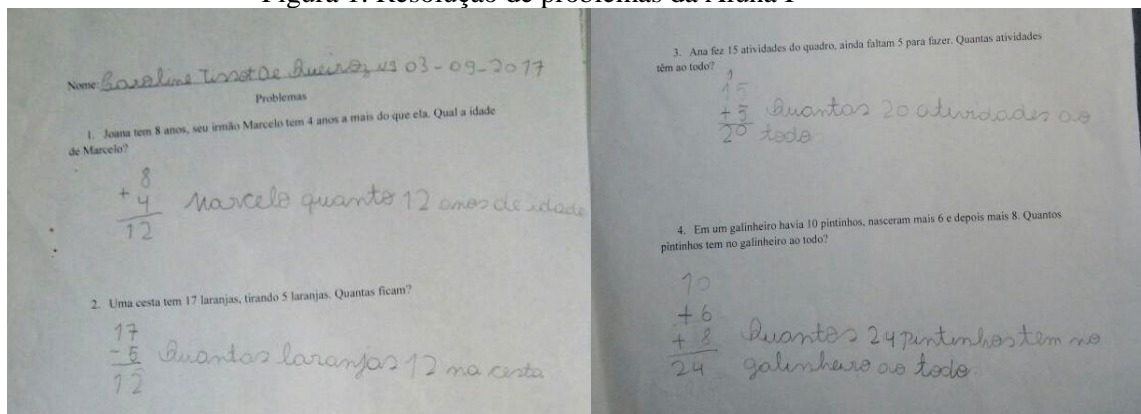 Figura 1: Resolução de problemas da Aluna P
Nome: Caroline Tissot De Queiroz 03-09-2017
Problemas
1. Joana tem 8 anos, seu irmão Marcelo tem 4 anos a mais do que ela. Qual a idade
de Marcelo?
8
+ 4
12
Marcelo quanto 12 anos de idade
2. Uma cesta tem 17 laranjas, tirando 5 laranjas. Quantas ficam?
17
- 5
12
Quantas laranjas 12 na cesta
3. Ana fez 15 atividades do quadro, ainda faltam 5 para fazer. Quantas atividades
têm ao todo?
1
15
+ 5
20
Quantas 20 atividades ao
todo
4. Em um galinheiro havia 10 pintinhos, nasceram mais 6 e depois mais 8. Quantos
pintinhos tem no galinheiro ao todo?
10
+ 6
+ 8
24
Quantos 24 pintinhos tem no
galinheiro ao todo.